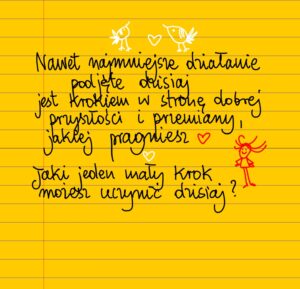 Nawet najmniejsze działanie
podjęte dzisiaj
jest krokiem w stronę dobrej
przyszłości i przemiany,
jakiej pragniesz
Jaki jeden mały krok
możesz uczynić dzisiaj?